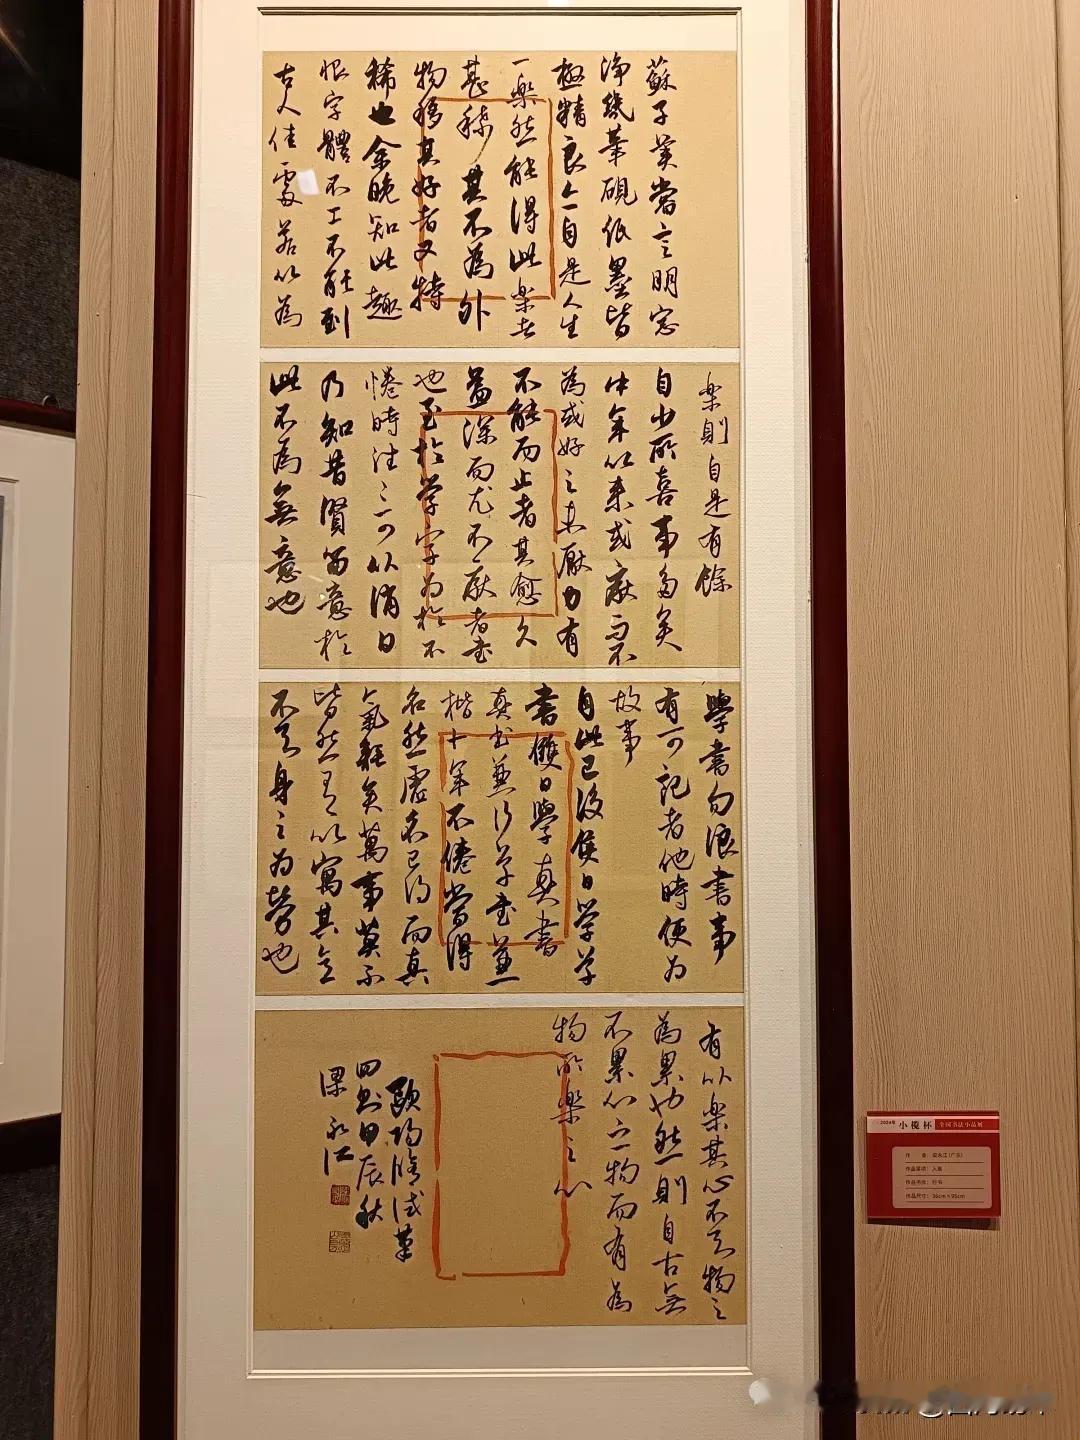 蘇子美嘗言明窓
淨几筆硯紙墨皆
極精良亦自是人生
一樂然能得此樂者
甚稀其不為外
物移其好者又特
稀也余晚知此趣
恨字體不工不能到
古人佳處若以為
樂則自是有餘
自少所喜事多矣
中年以來或厭而不
為或好之未厭力有
不能而止者其愈久
益深而尤不厭者書
也至於學字為於不
惓時往〻可以消日
乃知昔賢留意於
此不為無意也
學書勿浪書事
有可記者他時便為
故事
自此已後隻日學草
書雙日學真書
真書兼行草書兼
楷十年不倦當得
名然虛名已得而真
氣耗矣萬事莫不
皆然有以寓其意
不知身之為勞也
有以樂其心不知物之
為累也然則自古無
不累心之物而有為
物所樂之心
歐陽修試筆
四則甲辰秋
梁永江
2024年 小榄杯 全国书法小品展
作　者：梁永江(广东)
作品等级：入展
作品书体：行书
作品尺寸：36cm×95cm